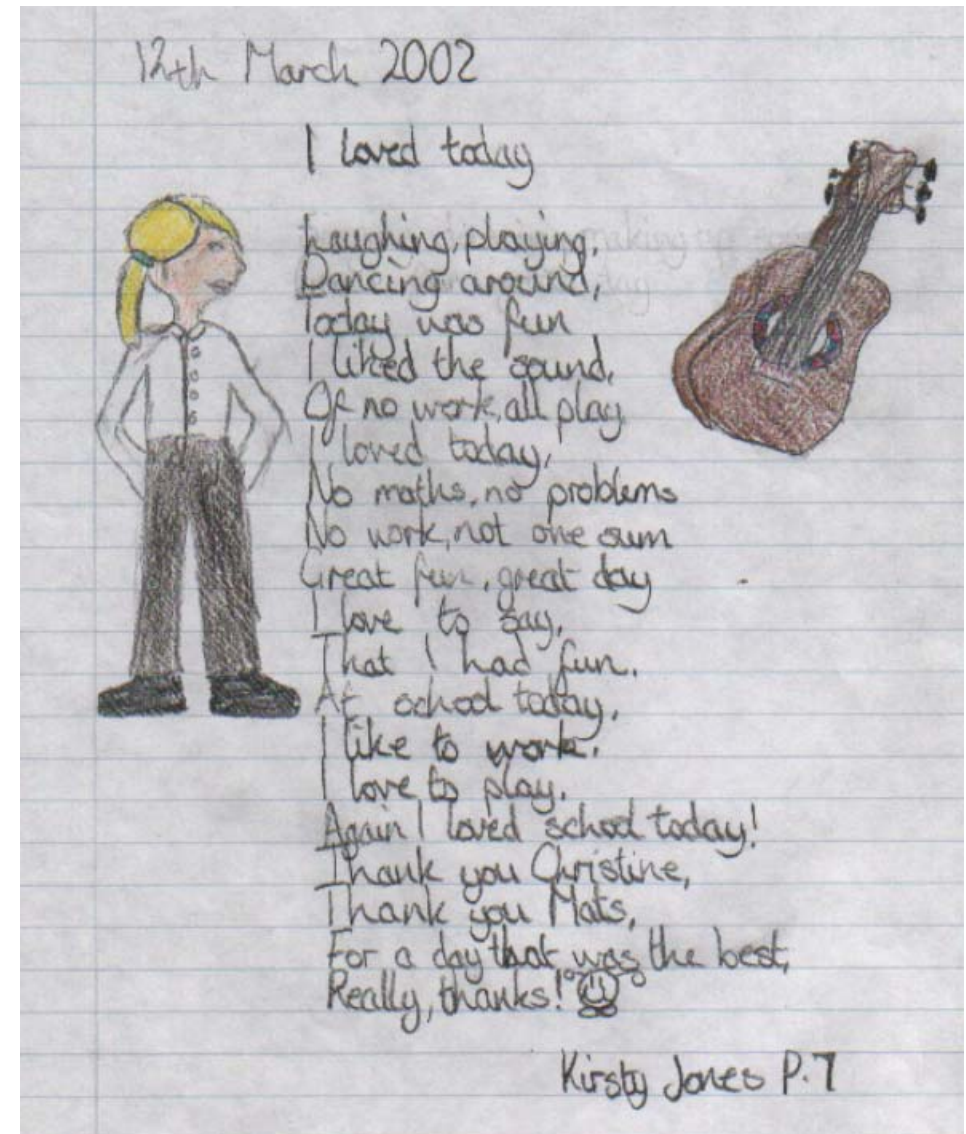 12th March 2002
I loved today
Laughing, playing,
Dancing around,
Today was fun
I liked the sound,
Of no work, all play
I loved today,
No maths, no problems
No work, not one sum
Great fun, great day
I love to say,
That I had fun.
At school today,
I like to work.
I love to play.
Again I loved school today!
Thank you Christine,
Thank you Mats,
For a day that was the best,
Really, thanks!
Kirsty Jones P.7